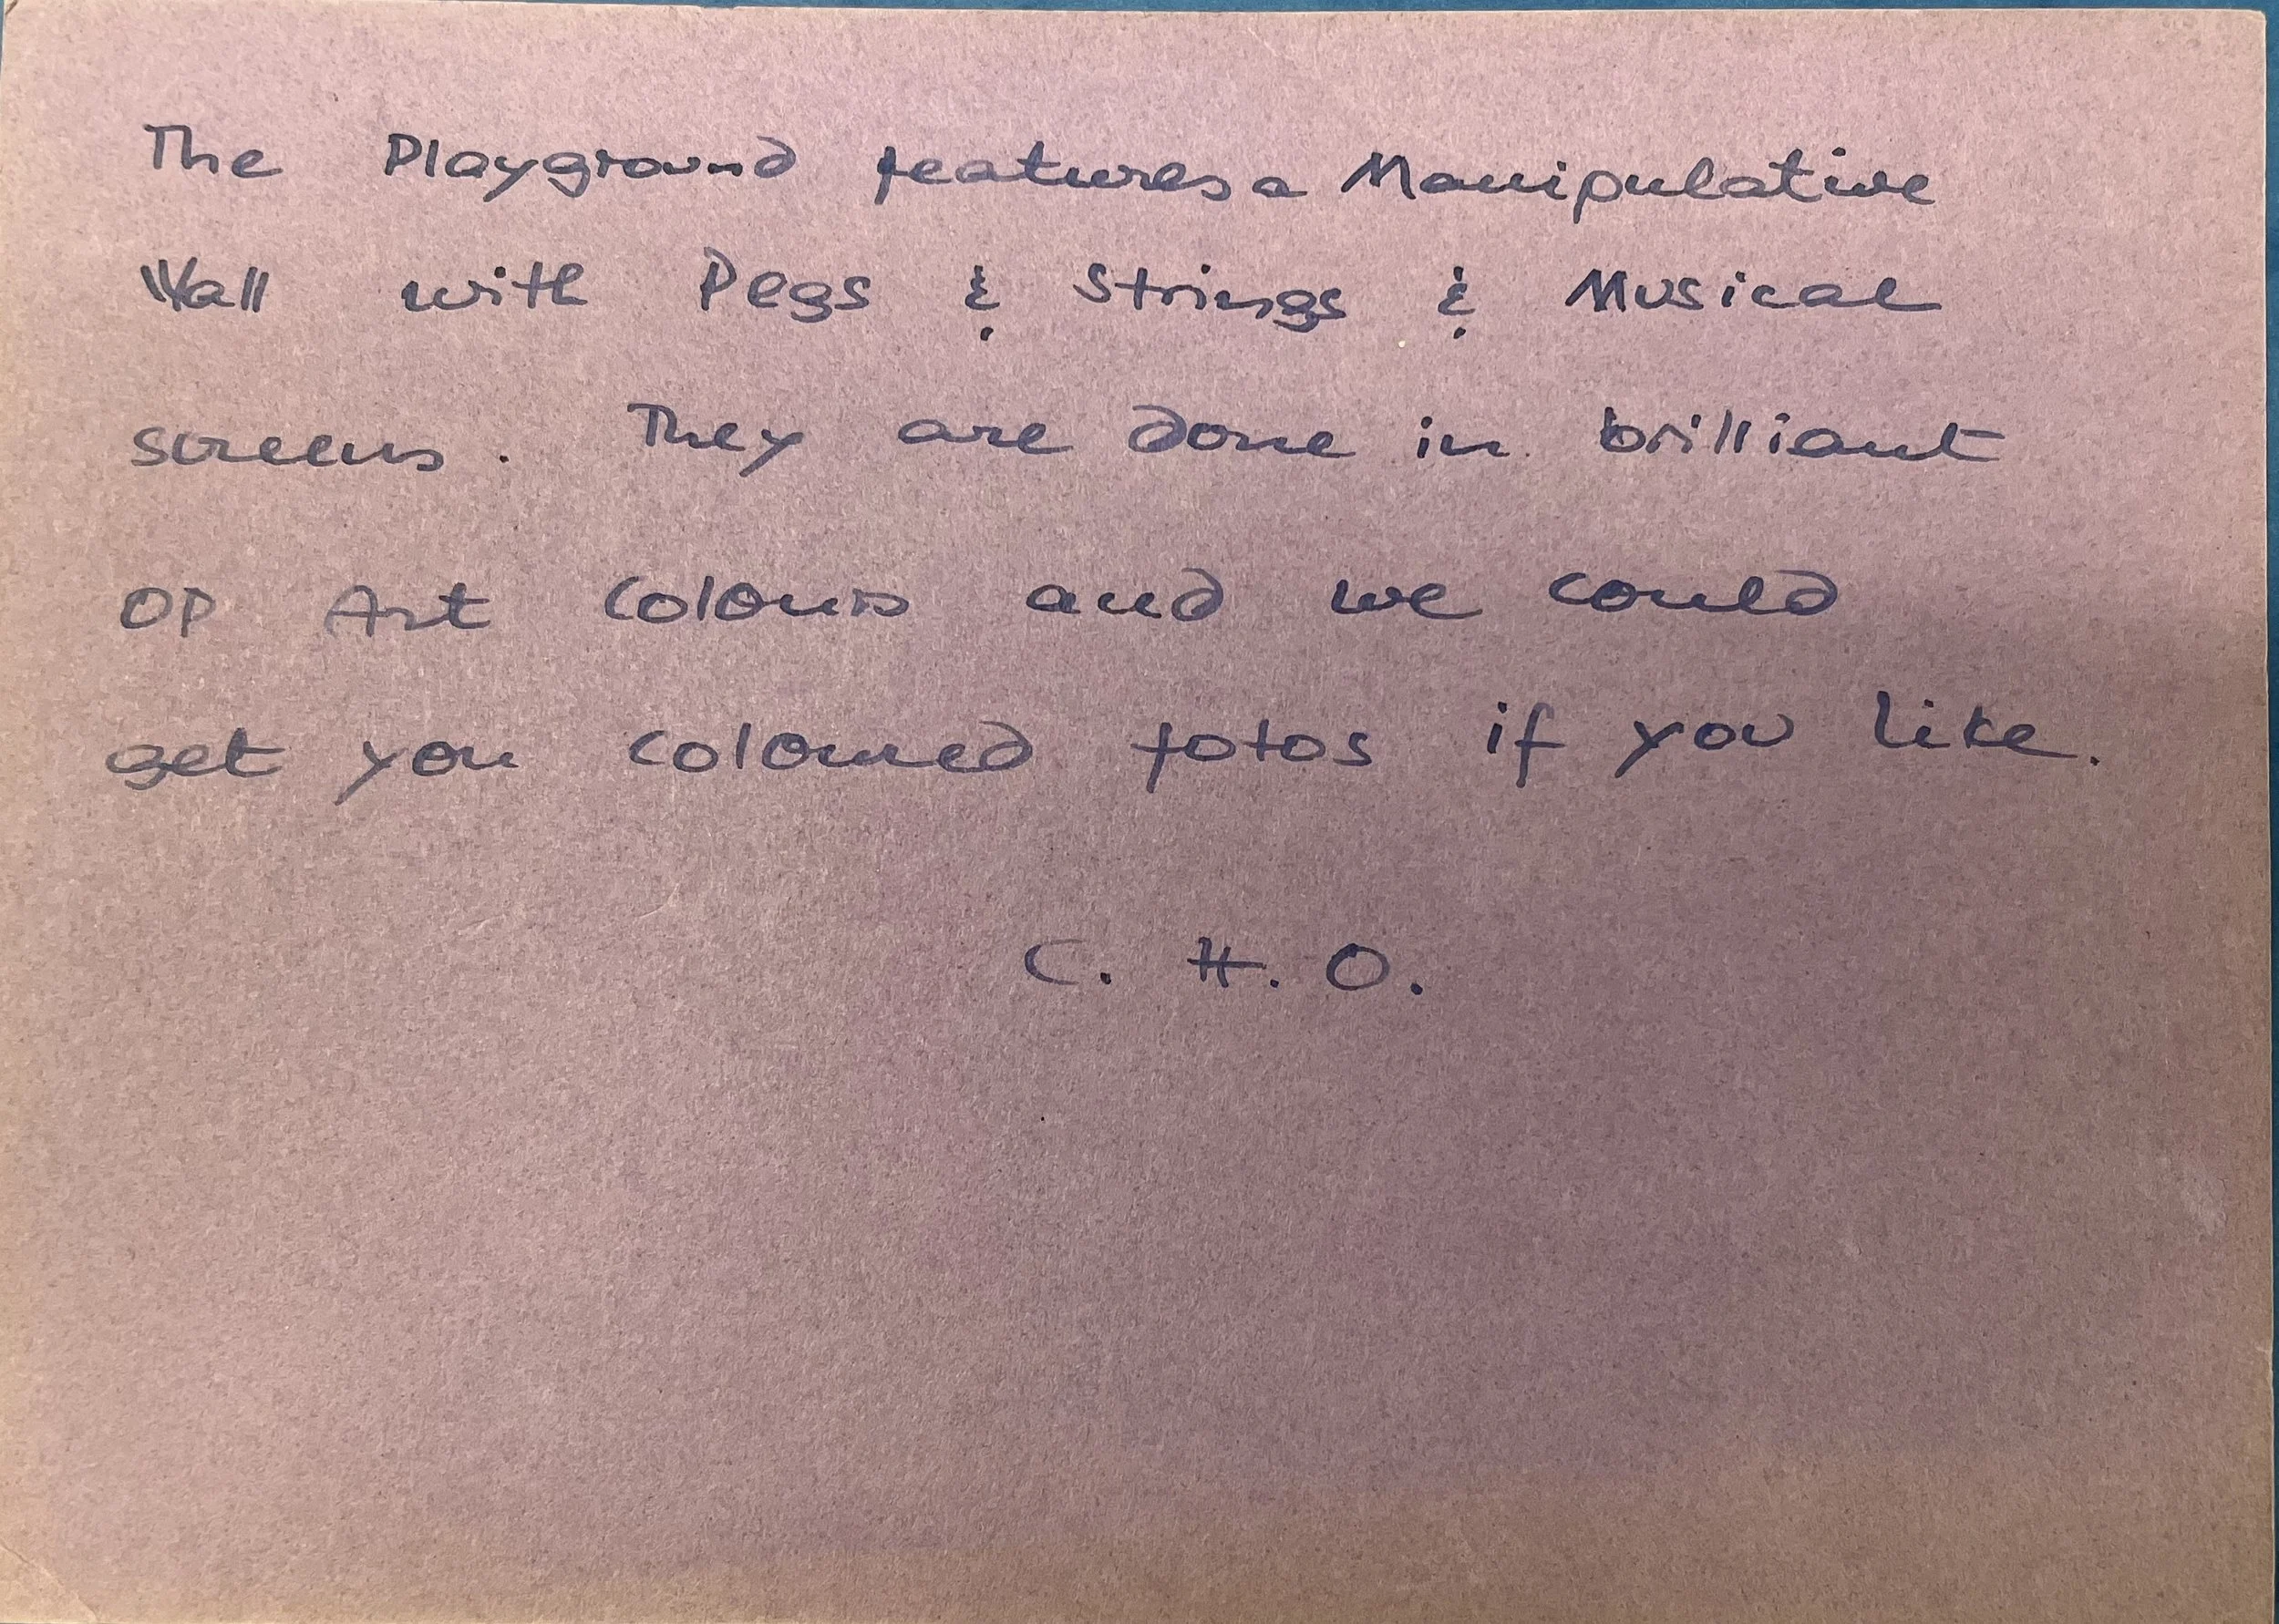 The Playground features a Manipulative
Wall with Pegs & Strings & Musical
screens. They are done in brilliant
OP Art colours and we could
get you coloured fotos if you like.
C. H. O.